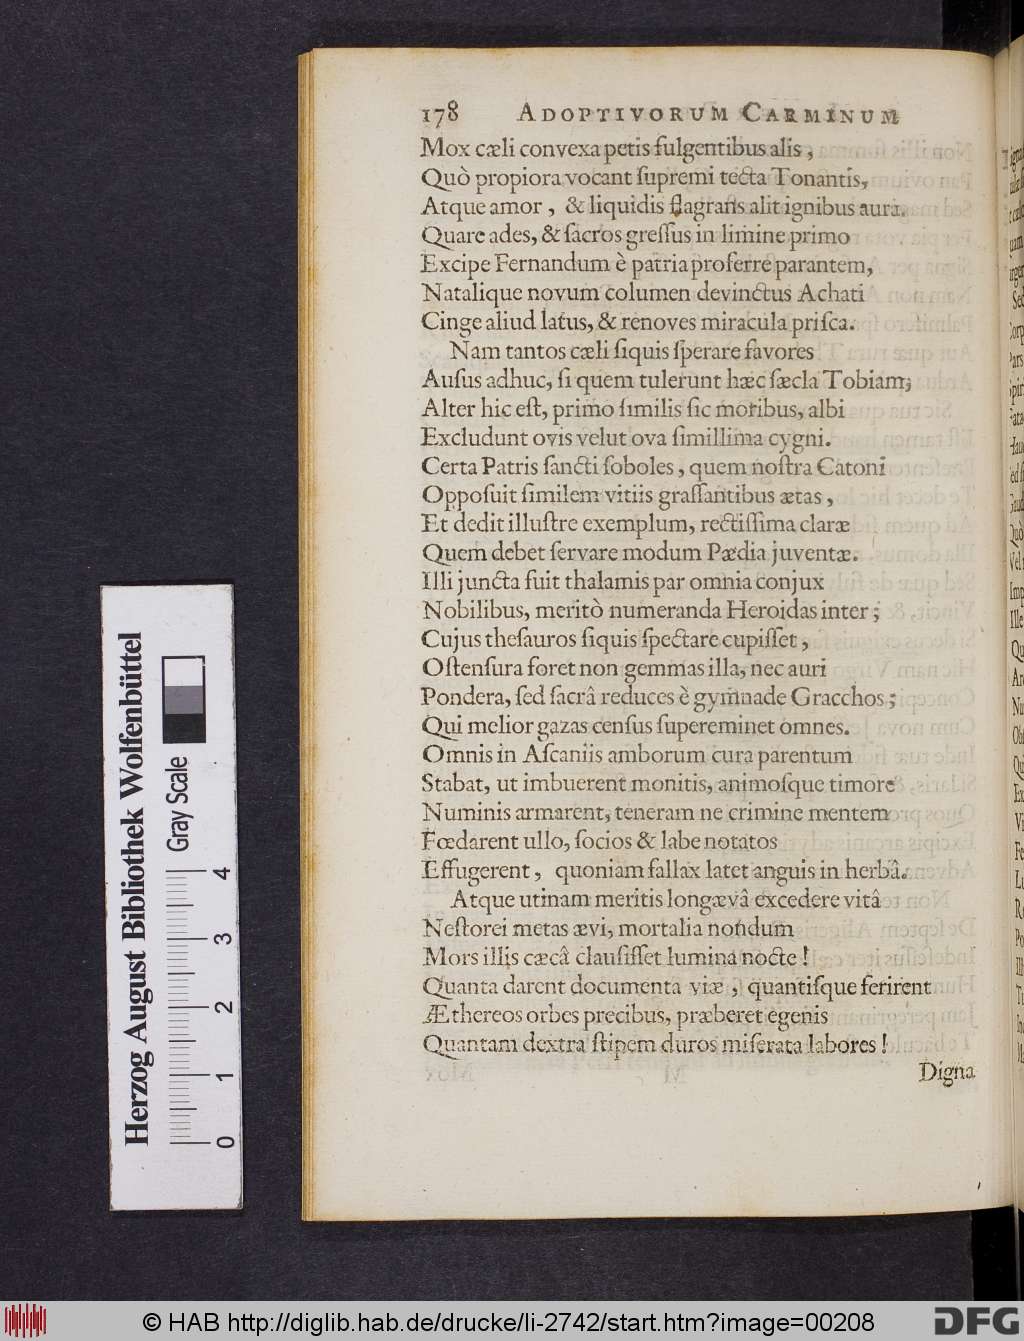 178 ADOPTIVORUM CARMINUM
Mox cæli convexa petis fulgentibus alis,
Quò propiora vocant ſupremi tecta Tonantis,
Atque amor, & liquidis flagrans alit ignibus aura.
Quare ades, & ſacros greſſus in limine primo
Excipe Fernandum è patria proferre parantem,
Natalique novum columen devinctus Achati
Cinge aliud latus, & renoves miracula priſca.
Nam tantos cæli ſiquis ſperare favores
Auſus adhuc, ſi quem tulerunt hæc ſæcla Tobiam;
Alter hic eſt, primo ſimilis ſic moribus, albi
Excludunt ovis velut ova ſimillima cygni.
Certa Patris ſancti ſoboles, quem noſtra Catoni
Oppoſuit ſimilem vitiis graſſantibus ætas,
Et dedit illuſtre exemplum, rectiſſima claræ
Quem debet ſervare modum Pædia juventæ.
Illi juncta fuit thalamis par omnia conjux
Nobilibus, meritò numeranda Heroidas inter;
Cujus theſauros ſiquis ſpectare cupiſſet,
Oſtenſura foret non gemmas illa, nec auri
Pondera, ſed ſacrâ reduces è gymnade Gracchos;
Qui melior gazas cenſus ſupereminet omnes.
Omnis in Aſcaniis amborum cura parentum
Stabat, ut imbuerent monitis, animoſque timore
Numinis armarent, teneram ne crimine mentem
Fœdarent ullo, ſocios & labe notatos
Effugerent, quoniam fallax latet anguis in herbâ.
Atque utinam meritis longævâ excedere vitâ
Neſtorei metas ævi, mortalia nondum
Mors illis cæcâ clauſiſſet lumina nocte!
Quanta darent documenta viæ, quantiſque ferirent
Æthereos orbes precibus, præberet egenis
Quantam dextra ſtipem duros miſerata labores!
Digna
Herzog August Bibliothek Wolfenbüttel
Gray Scale
0 1 2 3 4
© HAB http://diglib.hab.de/drucke/li-2742/start.htm?image=00208
DFG